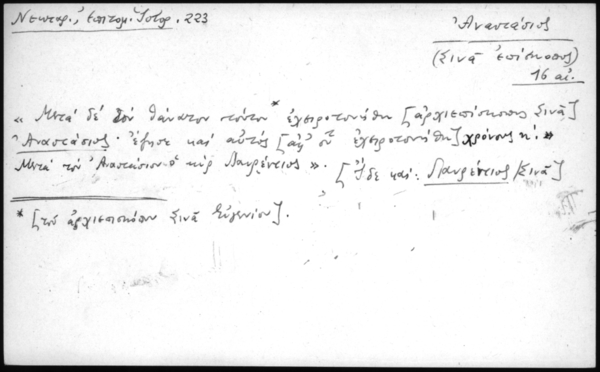 Νεκταρ., ἐπιτομ. Ἱστορ. 223
Ἀναστάσιος
(Σινᾶ ἐπίσκοπος)
16 αἰ.
« Μετὰ δὲ τὸν θάνατον τούτου* ἐχειροτονήθη [ἀρχιεπίσκοπος Σινᾶ]
Ἀναστάσιος· ἔζησε καὶ αὐτὸς [ἀφ' οὗ ἐχειροτονήθη] χρόνους κ'. »
Μετὰ τὸν Ἀναστάσιον ὁ κὺρ Λαυρέντιος ». [Ἴδε καὶ: Λαυρέντιος /Σινᾶ]
* [τοῦ ἀρχιεπισκόπου Σινᾶ Εὐγενίου].